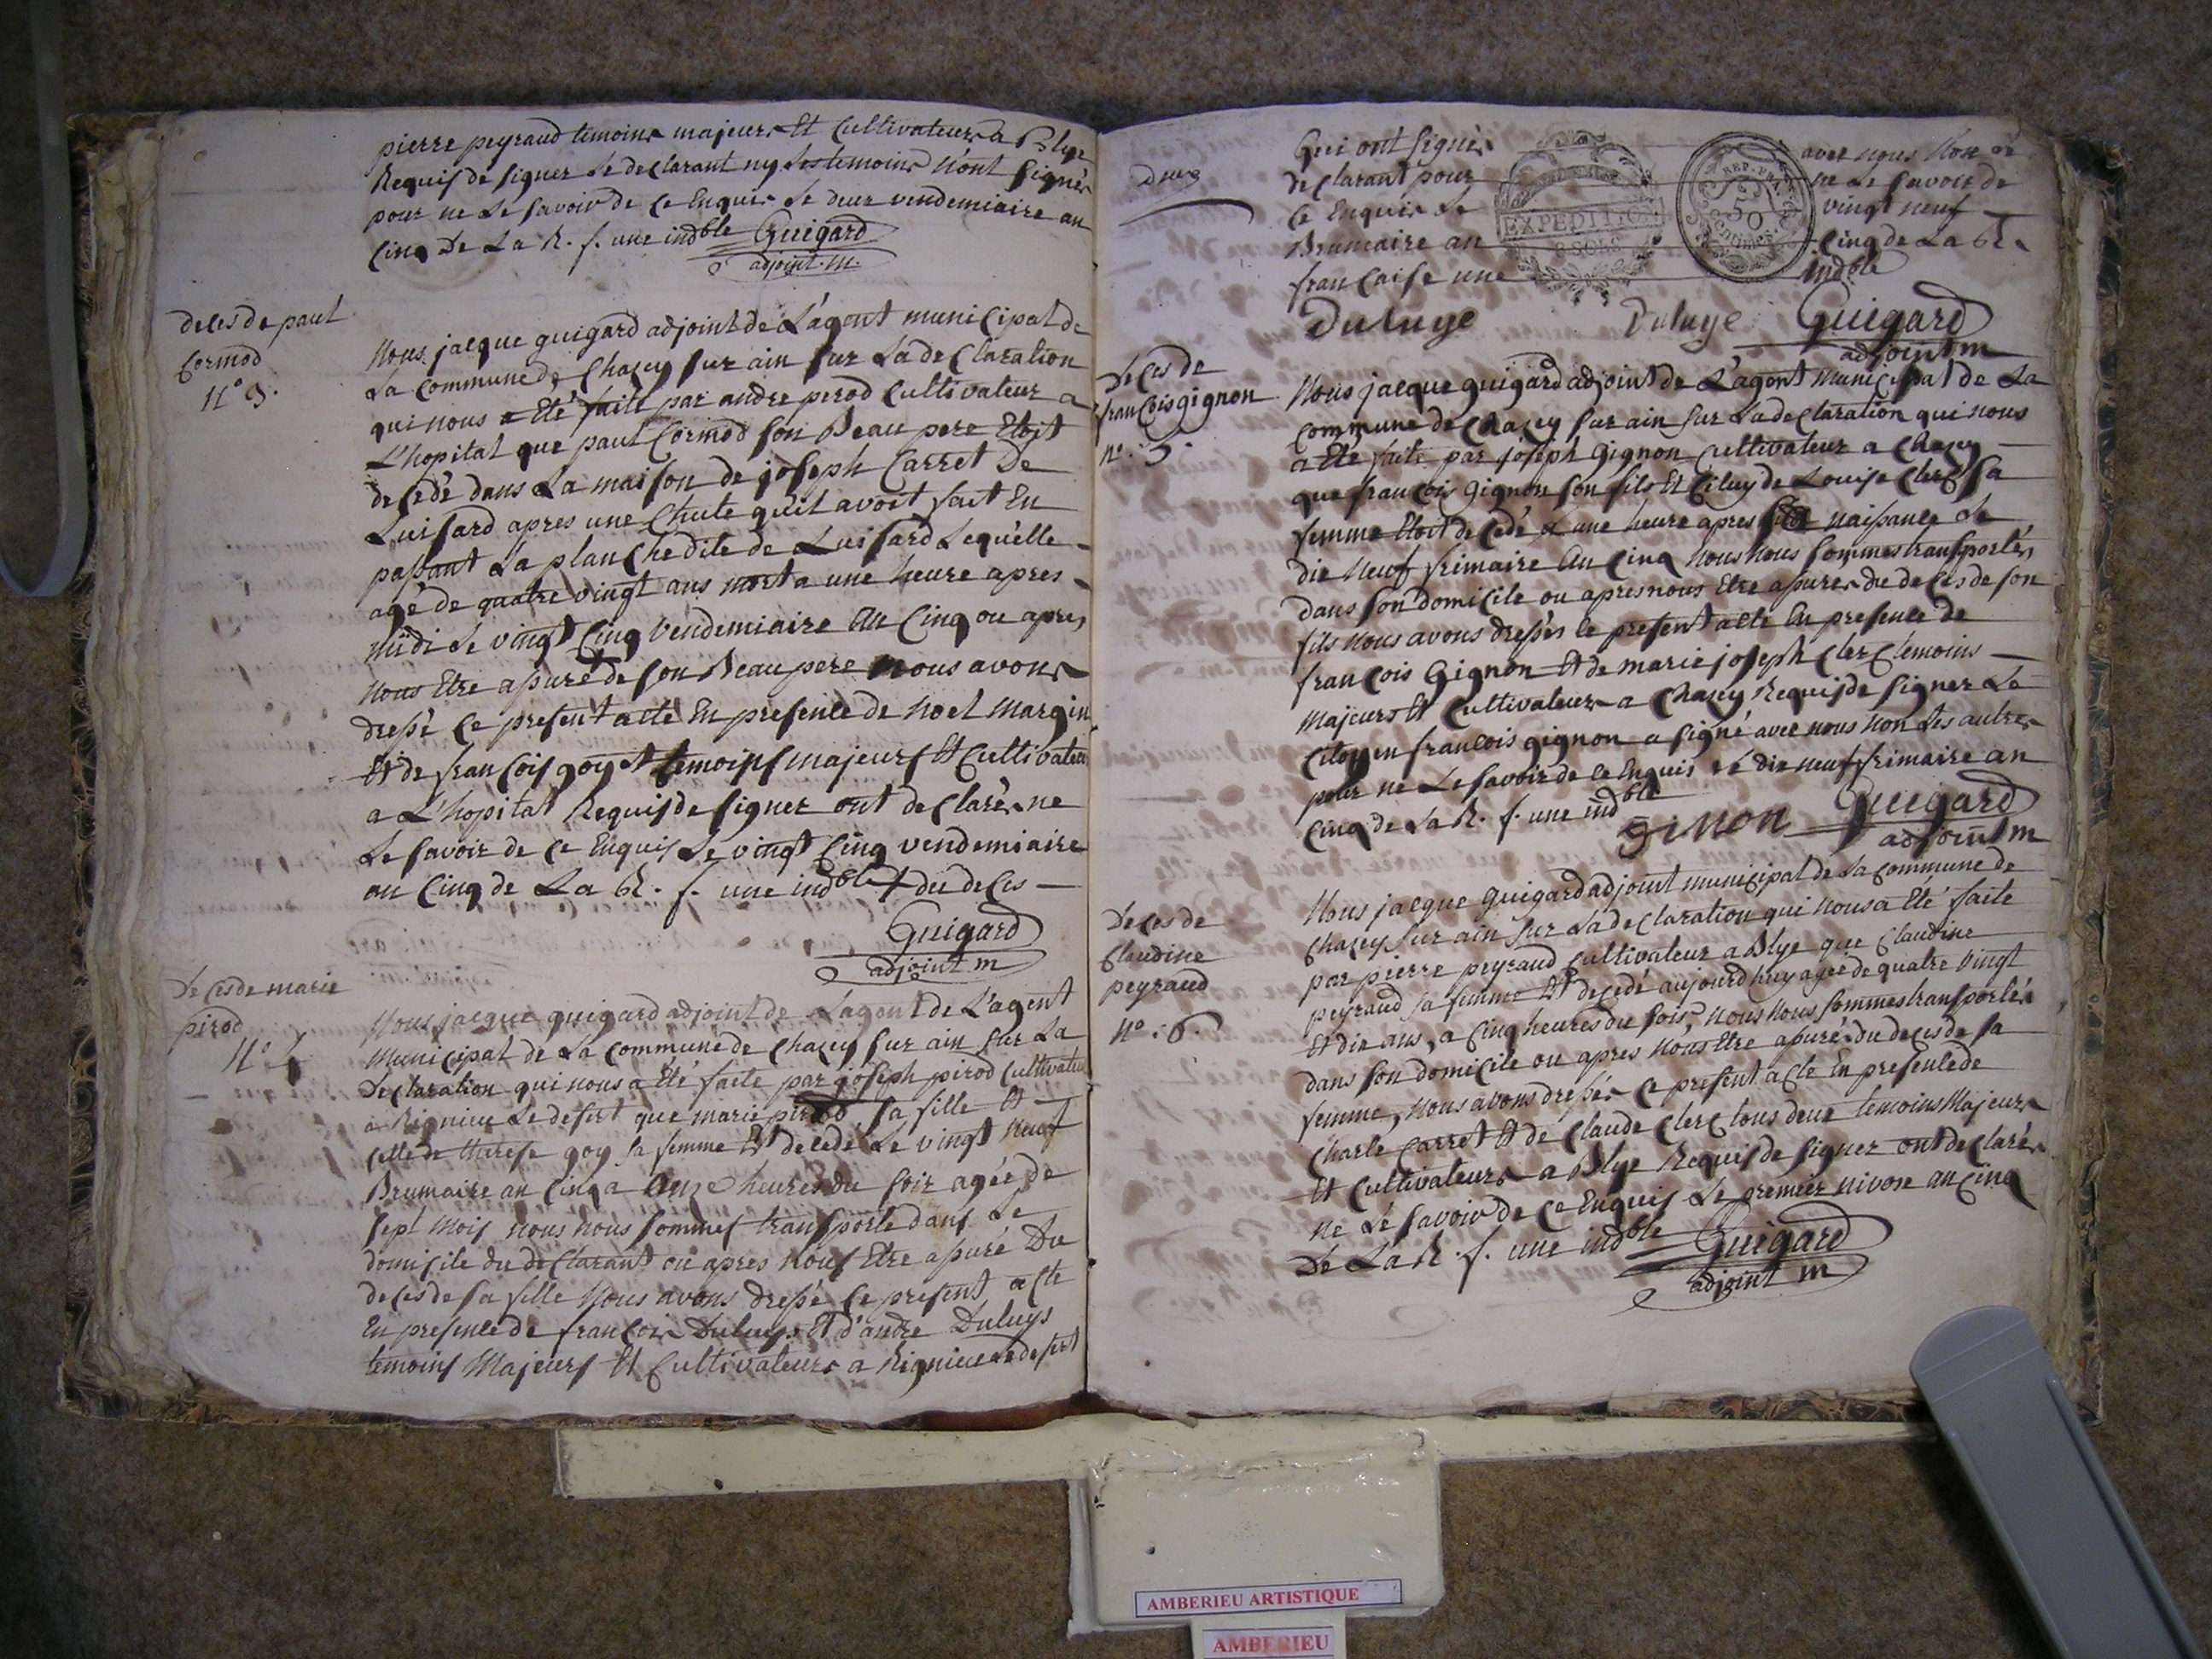 pierre peyraud temoins majeurs Et Cultivateurs a Blye
Requis de signer Le declarant ny Les temoins N'ont signés
pour ne Le savoir de ce Enquis Le deux vendemiaire an
Cinq De La R. f. une indble Guigard
adjoint. m.
deces de paul
Cormod
N° 3.
Nous jacque guigard adjoint de L'agent municipal de
La commune de Chazey sur ain sur La declaration
qui nous a Eté faite par andre perod Cultivateur a
L'hopital que paul Cormod son Beau pere Etoit
decedé dans La maison de joseph Carret De
Luisard apres une Chute qu'il avoit fait En
passant La planche dite de Luisard Lequelle
agé de quatre vingt ans mort a une heure apres
midi Le vingt Cinq Vendemiaire An Cinq ou apres
Nous Etre apuré de son Beau pere Nous avons
dressé Ce present acte En presence de Noel Margin
Et de francois goyet temoins majeurs Et Cultivateur
a L'hopital Requis de signer ont declarés ne
Le savoir de ce Enquis Le vingt Cinq vendemiaire
an Cinq de La R. f. une indble + du deces
Guigard
adjoint m
Deces de marie
pirod
N° 4
Nous jacque guigard adjoint de Lagent de L'agent
Municipal de La Commune de Chazey sur ain sur La
Declaration qui nous a Eté faite par joseph pirod Cultivateur
a Rignieu Le desert que marie pirod sa fille Et
Celle de therese goy sa femme Et decedé Le vingt Neuf
Brumaire an Cinq a Onze heures du soir agée de
sept Mois nous nous sommes transporté dans Le
domicile du declarant ou apres Nous Etre apuré Du
deces de sa fille Nous avons dressé Ce present acte
En presence de francois Duluys Et d'andre Duluys
temoins Majeurs Et Cultivateurs a Rignieu Le desert
Deux
Qui ont signés avec nous Non Le
declarant pour ne Le savoir de
Ce Enquis Le vingt neuf
EXPEDITION
REP. FRA.
50
Centimes
Brumaire an Cinq de La R.
française une indble
Duluye Duluye Guigard
adjoint m
Deces de
francois gignon
N°. 5.
Nous jacque guigard adjoint de L'agent municipal de La
Commune de Chazey sur ain sur La declaration qui nous
a Eté faite par joseph gignon Cultivateur a Chazey
que francois gignon son fils Et Celuy de Louise Clerc sa
femme Etoit decedé a une heure apres sa naissance Le
dix Neuf frimaire An Cinq Nous Nous sommes transportés
dans son domicile ou apres nous Etre apures du deces de son
fils Nous avons dressés le present acte En presence de
francois Gignon Et de marie joseph Clerc temoins
Majeurs Et Cultivateurs a Chazey Requis de signer Le
Citoyen francois gignon a signé avec nous Non Les autres
pour ne Le savoir de ce Enquis Le dix neuf frimaire an
Cinq de La R. f. une indble
Ginon Guigard
adjoint m
Deces de
Claudine
peyraud
N°. 6.
Nous jacque Guigard adjoint municipal de La commune de
Chazey sur ain sur La declaration qui nous a Eté faite
par pierre peyraud Cultivateur a Blye que Claudine
peyraud sa femme Et decedé aujourd'huy agée de quatre vingt
Et dix ans, a Cinq heures du soir, Nous Nous sommes transportés
dans son domicile ou apres Nous Etre apuré du deces de sa
femme, Nous avons dressés Ce present acte En presence de
Charle Carret Et de Claude Clerc tous deux temoins Majeurs
Et Cultivateurs a Blye Requis de signer ont declarés
ne Le savoir de Ce Enquis Le premier nivose an Cinq
De La R. f. une indble Guigard
adjoint m
AMBERIEU ARTISTIQUE
AMBERIEU